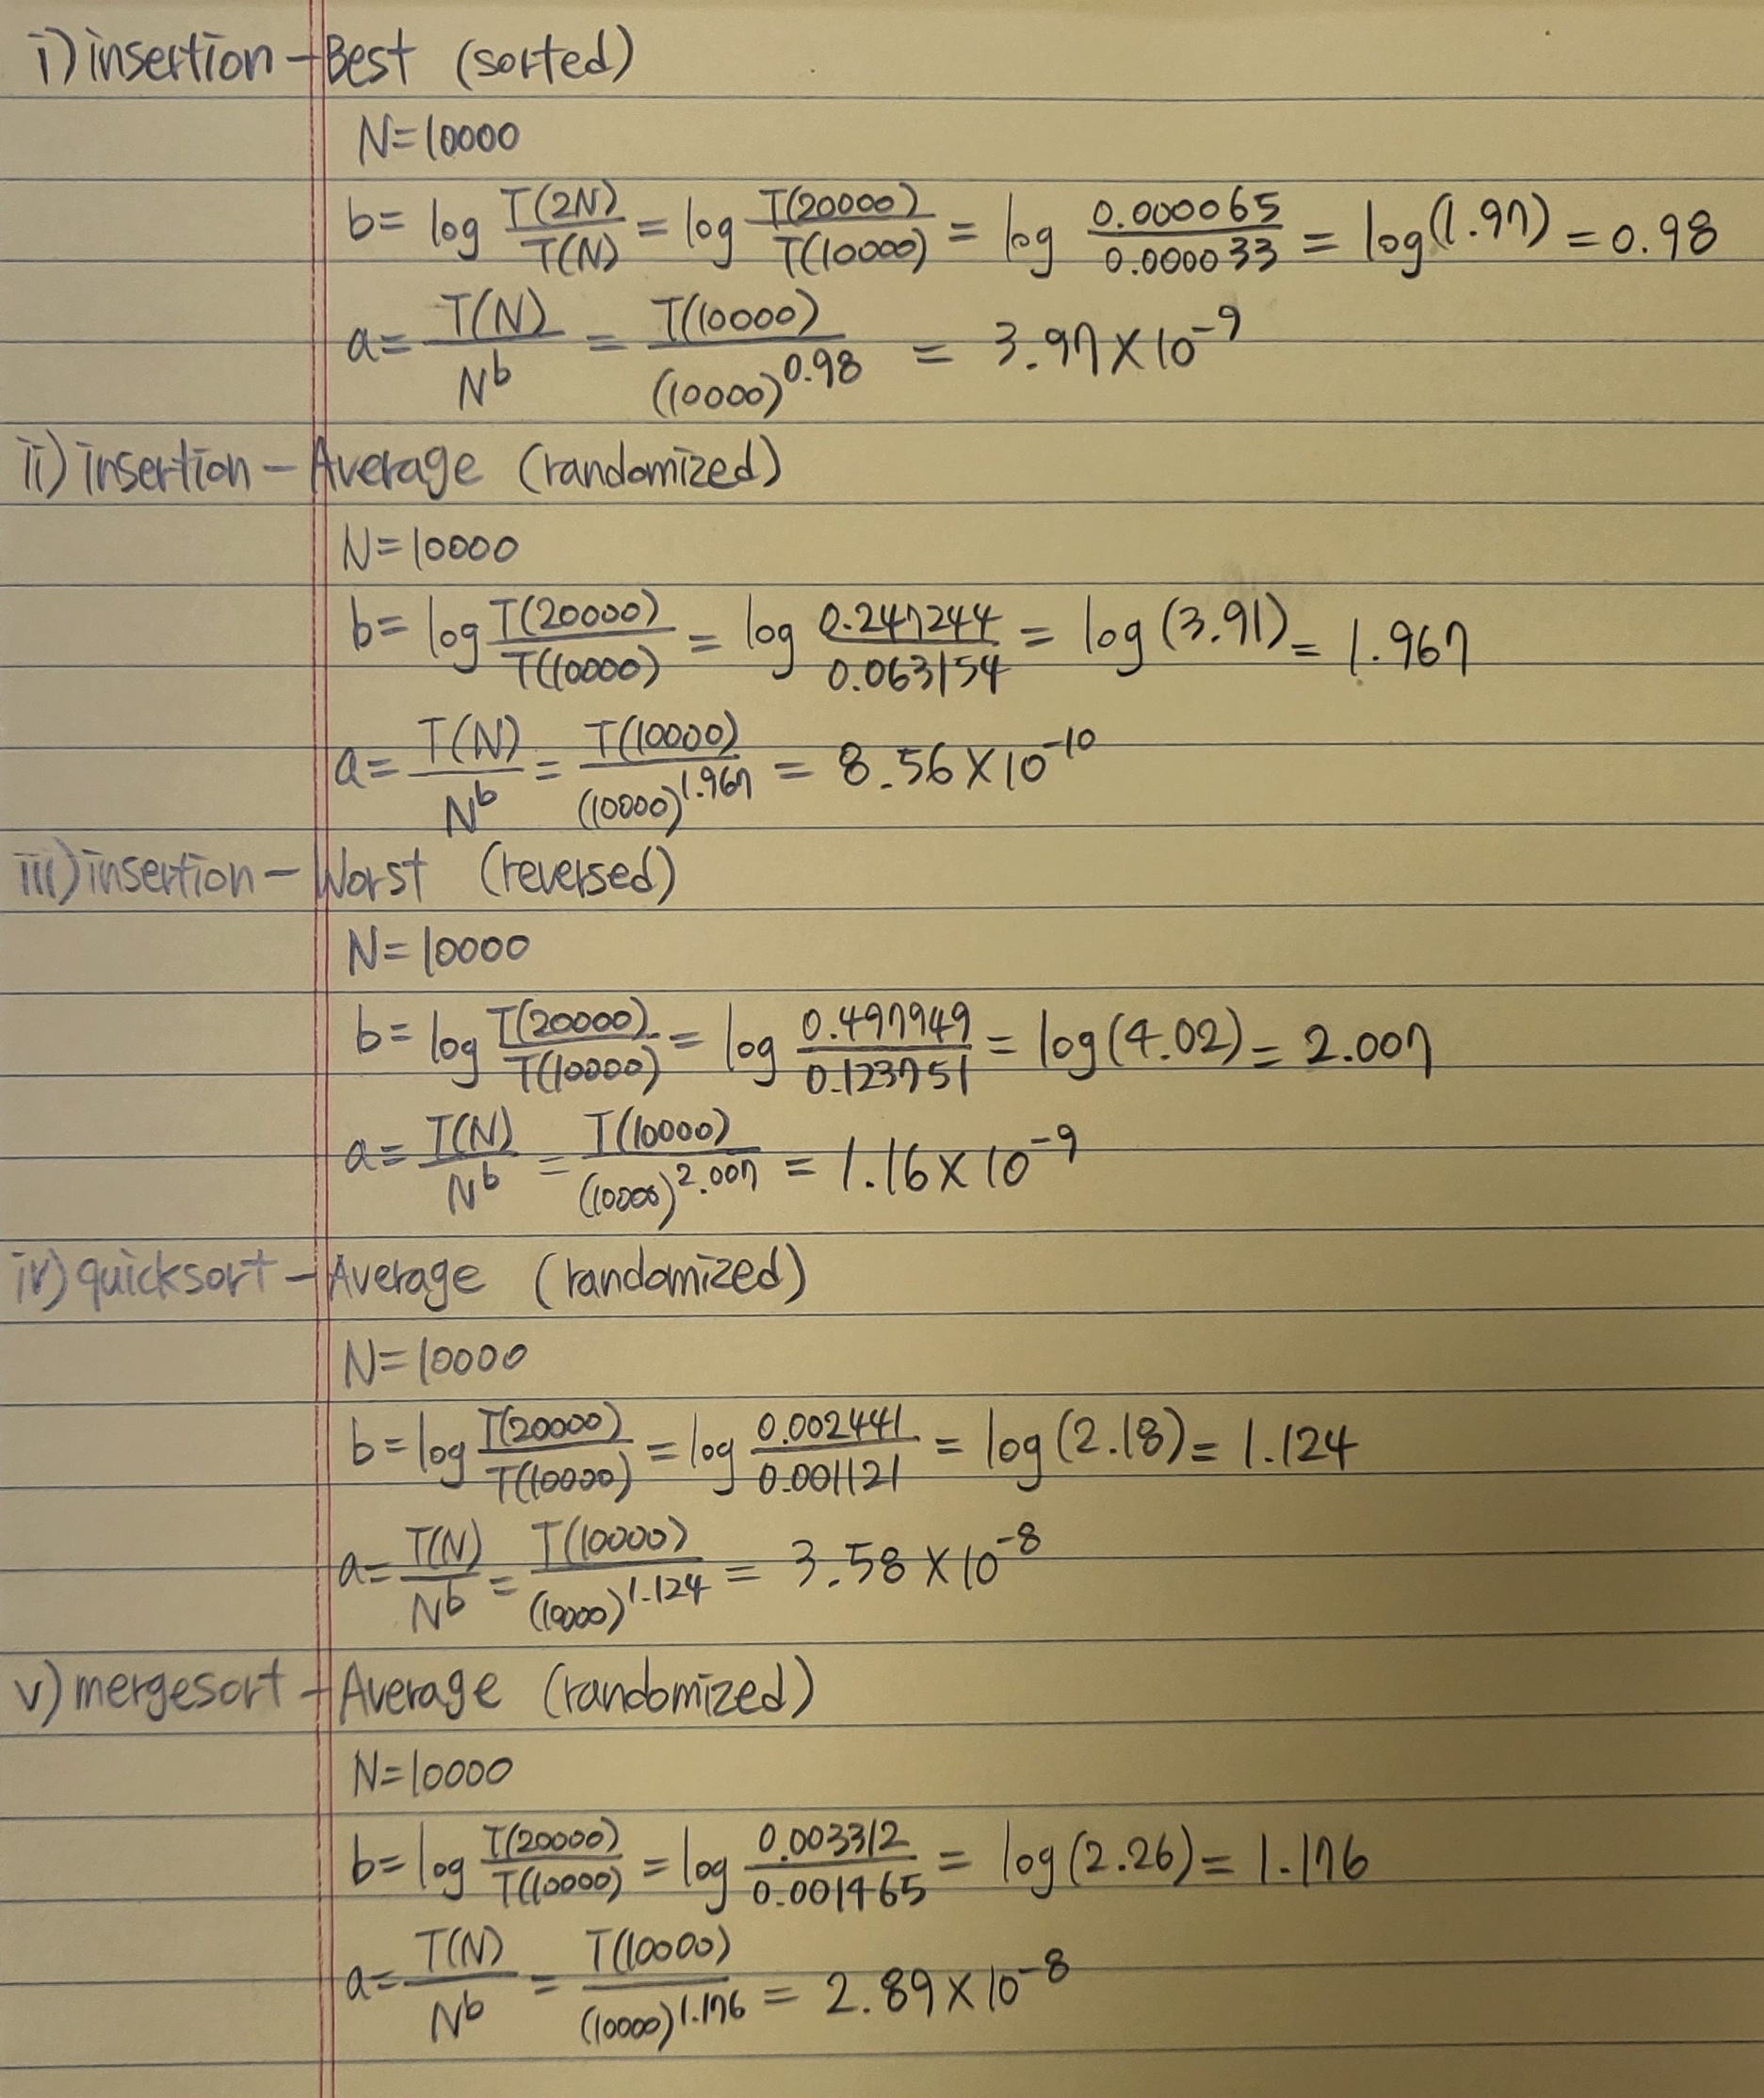 i) insertion - Best (sorted)
N=10000
b= log T(2N)/T(N) = log T(20000)/T(10000) = log 0.000065/0.000033 = log(1.97) = 0.98
a= T(N)/N^b = T(10000)/(10000)^0.98 = 3.97×10^-9
ii) insertion - Average (randomized)
N=10000
b= log T(20000)/T(10000) = log 0.247244/0.063154 = log(3.91) = 1.967
a= T(N)/N^b = T(10000)/(10000)^1.967 = 8.56×10^-10
iii) insertion - Worst (reversed)
N=10000
b= log T(20000)/T(10000) = log 0.497949/0.123751 = log(4.02) = 2.007
a= T(N)/N^b = T(10000)/(10000)^2.007 = 1.16×10^-9
iv) quicksort - Average (randomized)
N=10000
b= log T(20000)/T(10000) = log 0.002441/0.001121 = log(2.18) = 1.124
a= T(N)/N^b = T(10000)/(10000)^1.124 = 3.58×10^-8
v) mergesort - Average (randomized)
N=10000
b= log T(20000)/T(10000) = log 0.003312/0.001465 = log(2.26) = 1.176
a= T(N)/N^b = T(10000)/(10000)^1.176 = 2.89×10^-8